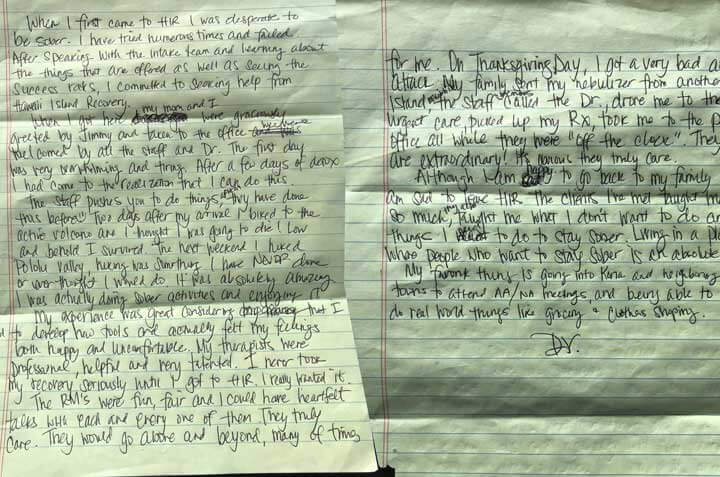 When I first came to HIR I was desperate to
be sober. I have tried numerous times and failed.
After speaking with the intake team and learning about
the things that are offered as well as seeing the
success rate, I committed to seeking help from
Hawaii Island Recovery.
When I got here, my mom and I were graciously
greeted by Jimmy and taken to the office we were
welcomed by all the staff and Dr. The first day
was very overwhelming and tiring. After a few days of detox
I had come to the realization that I can do this.
The staff pushes you to do things "they have done
this before". Two days after my arrival I biked to the
active volcano and I thought I was going to die! Low
and behold I survived. The next weekend I hiked
Pololu Valley, hiking was something I have NEVER done
or ever thought I would do. It was absolutely amazing
I was actually doing sober activities and enjoying it
My experience was great considering that I
to develop new tools and actually felt my feelings
both happy and uncomfortable. My therapists were
professional, helpful and very talented. I never took
my recovery seriously until I got to HIR. I really wanted it.
The RM's were fun, fair and I could have heartfelt
talks with each and every one of them. They truly
care. They would go above and beyond, many of times
for me. On Thanksgiving Day, I got a very bad
attack. My family sent my nebulizer from another
Island the staff called the Dr, drove me to the
urgent care, picked up my Rx, took me to the
office all while they were "off the clock". They
are extraordinary! It's obvious they truly care.
Although I am happy to go back to my family
am sad to leave HIR. The clients I've met taught me
so much, taught me what I don't want to do
things I need to do to stay sober. Living in a
where people who want to stay sober is an absolute
My favorite thing is going into Kona and neighboring
towns to attend AA/NA meetings, and being able to
do real world things like grocery & clothes shopping.
D.V.